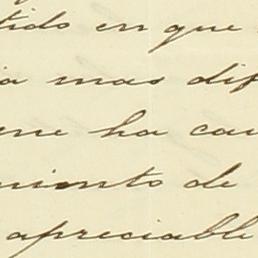 tido en que
ia mas dif
me ha cau
miento de
apreciable